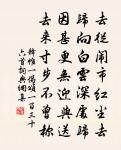 去從閙市紅塵去
歸向白雲深處歸
因甚更無迎與送
去來寸步不曾移
釋惟一偈頌一百三十
六首詞典網集